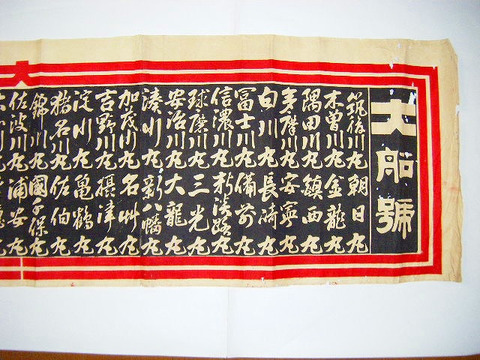 大船號
筑後川丸 朝日丸
木曽川丸 金龍丸
隅田川丸 鎮西丸
多摩川丸 安寧丸
白川丸 長崎丸
冨士川丸 備前丸
信濃川丸 丸
球磨川丸 三光丸
安治川丸 大龍丸
湊川丸 新八幡丸
加茂川丸 丸
吉野川丸 摂津丸
淀川丸 亀鶴丸
猪名川丸 佐伯丸
川丸 丸
佐波川丸 浦安丸
大